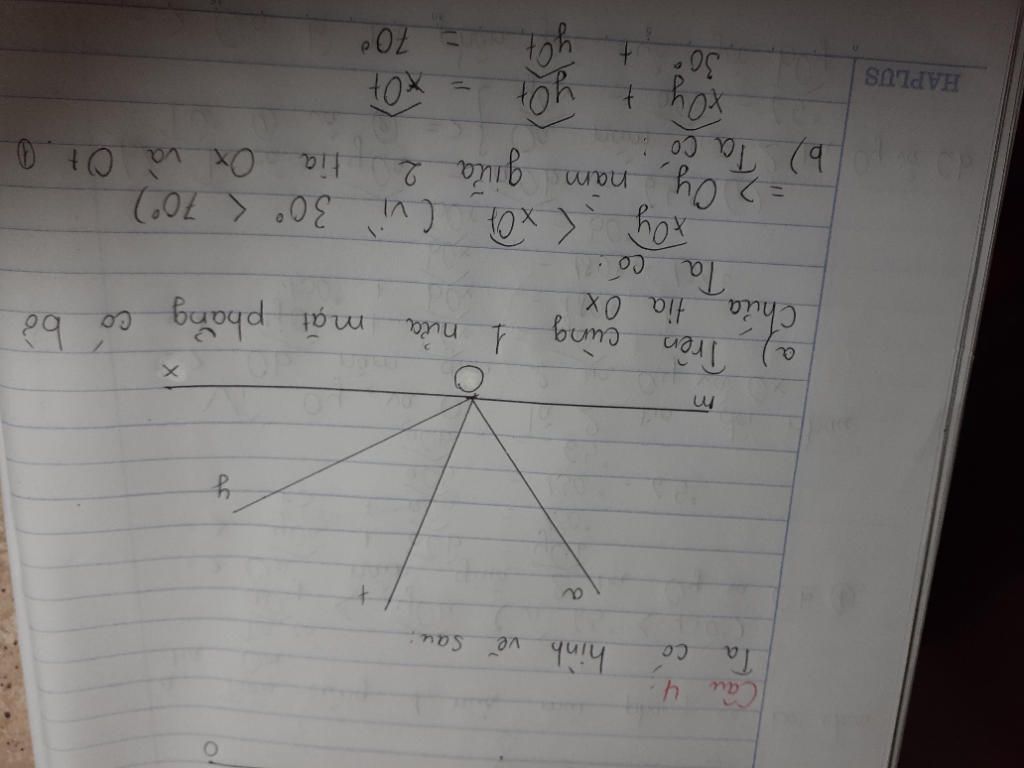 O
Câu 4:
Ta có hình vẽ sau:
a
t
y
m
O
x
a) Trên cùng 1 nửa mặt phẳng có bờ
chứa tia Ox
Ta có:
xOy < xOt (vì 30° < 70°)
=> Oy nằm giữa 2 tia Ox và Ot ①
b) Ta có:
xOy + yOt = xOt
30° + yOt = 70°
HAPLUS